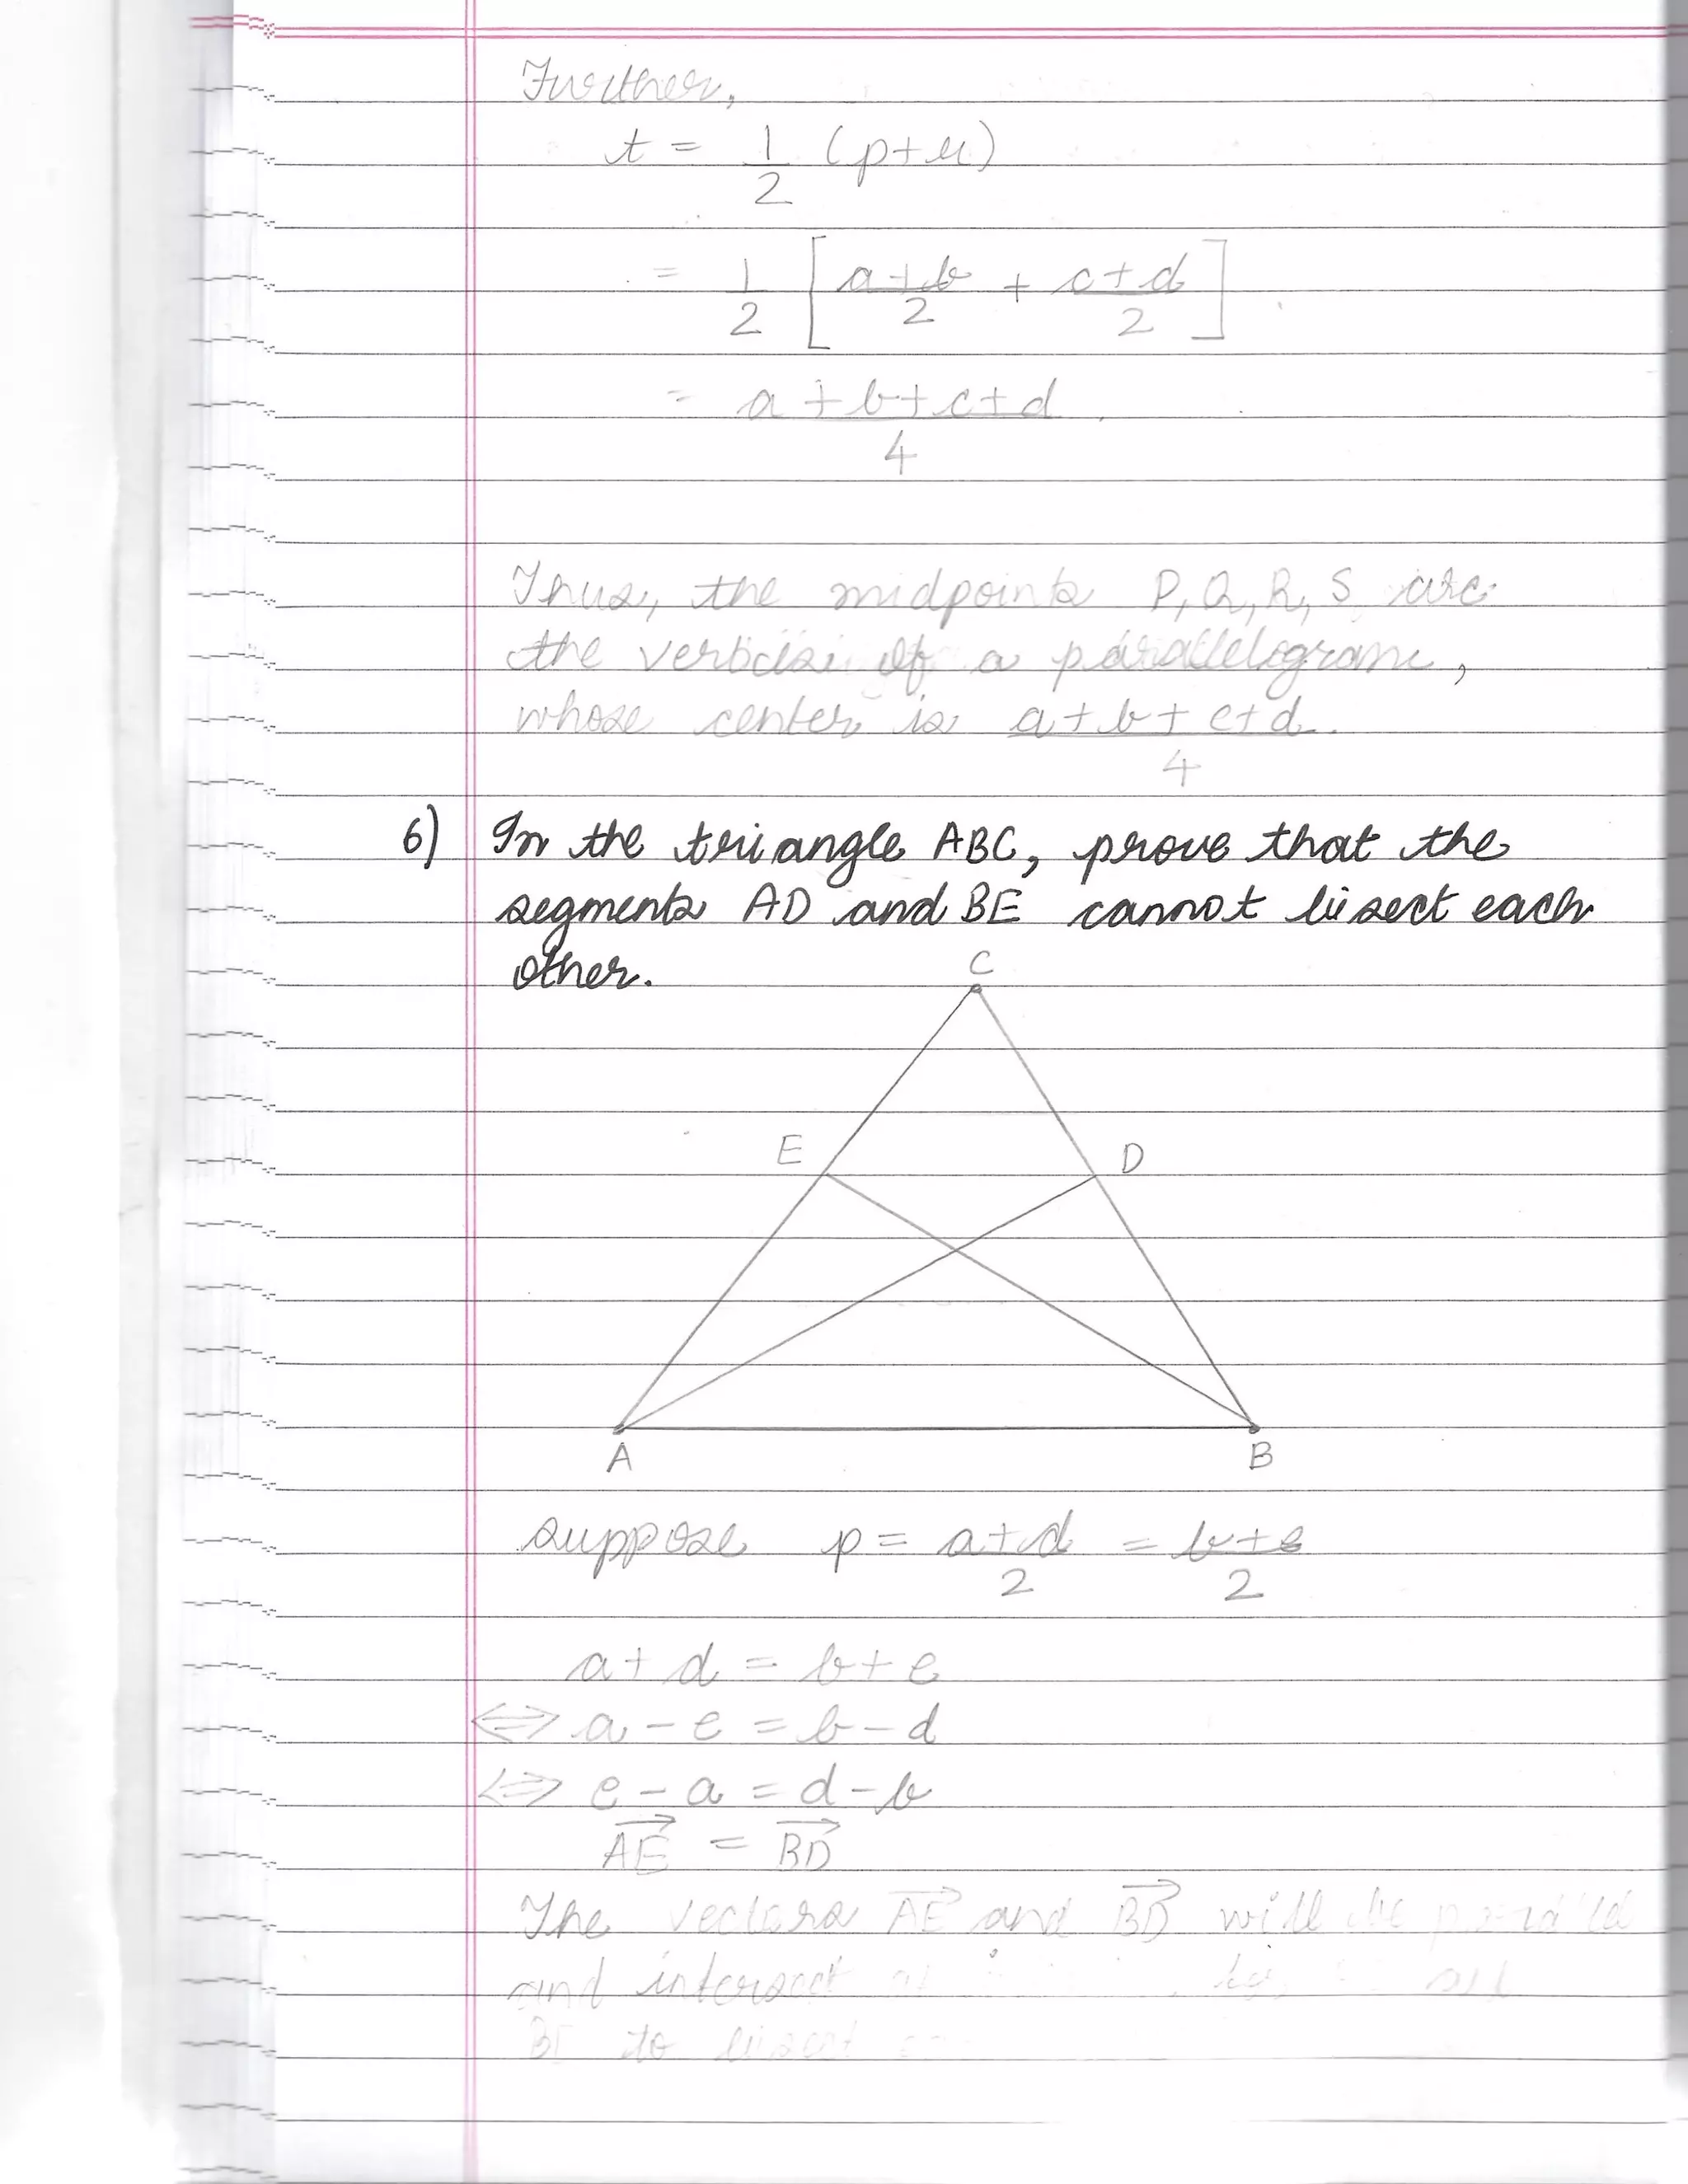 Further,
t = 1/2 (p+r)
= 1/2 [ a+b/2 + c+d/2 ]
= a+b+c+d / 4
Thus, the midpoints P, Q, R, S are
the of a parallelogram,
whose center is a+b+c+d / 4.
6) In the triangle ABC, prove that the
segments AD and BE cannot bisect each
other.
C
E D
A B
suppose p = a+d/2 = b+e/2
a+d = b+e
⟺ a-e = b-d
⟺ e-a = d-b
AE⃗ = BD⃗
The vectors AE⃗ and BD⃗ will be
and intersect
to bisect